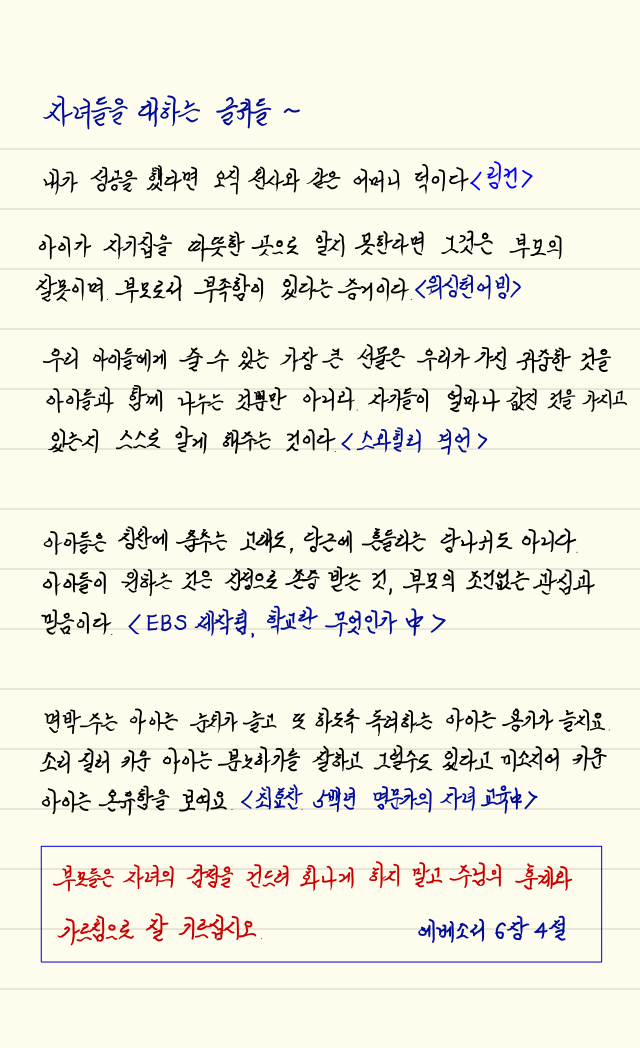 자녀들을 대하는 글귀들 ~
내가 성공을 했다면 오직 천사와 같은 어머니 덕이다<링컨>
아이가 자기집을 따뜻한 곳으로 알지 못한다면 그것은 부모의
잘못이며. 부모로서 부족함이 있다는 증거이다.<워싱턴어빙>
우리 아이들에게 줄 수 있는 가장 큰 선물은 우리가 가진 귀중한 것을
아이들과 함께 나누는 것뿐만 아니라. 자기들이 얼마나 값진 것을 가지고
있는지 스스로 알게 해주는 것이다.<스와힐리 격언>
아이들은 칭찬에 춤추는 고래도, 당근에 흔들리는 당나귀도 아니다.
아이들이 원하는 것은 진정으로 존중 받는 것, 부모의 조건없는 관심과
믿음이다. <EBS 제작팀, 학교란 무엇인가 中>
면박 주는 아이는 눈치가 늘고 또 하도록 독려하는 아이는 용기가 늘지요.
소리 질러 키운 아이는 분노하기를 잘하고 그럴수도 있다고 미소지어 키운
아이는 온유함을 보여요. <최효찬. 5백년 명문가의 자녀교육中>
부모들은 자녀의 감정을 건드려 화나게 하지 말고 주님의 훈계와
가르침으로 잘 기르십시오.
에베소서 6장 4절